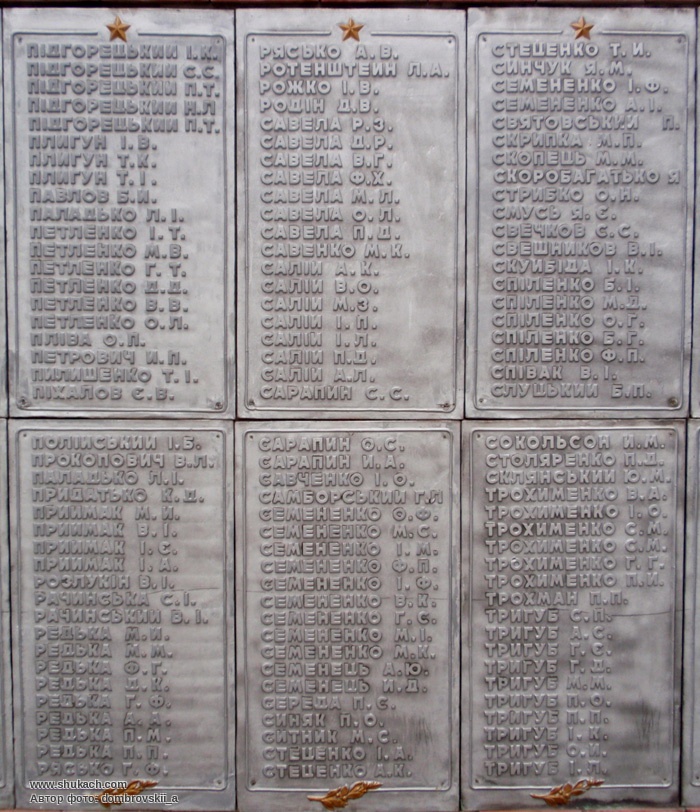 ПІДГОРЕЦЬКИЙ І.К.
ПІДГОРЕЦЬКИЙ С.С.
ПІДГОРЕЦЬКИЙ П.Т.
ПІДГОРЕЦЬКИЙ Н.Л
ПІДГОРЕЦЬКИЙ П.Т.
ПЛИГУН І.В.
ПЛИГУН Т.К.
ПЛИГУН Т.І.
ПАВЛОВ Б.И.
ПАЛАДЬКО Л.І.
ПЕТЛЕНКО І.Т.
ПЕТЛЕНКО М.В.
ПЕТЛЕНКО Г.Т.
ПЕТЛЕНКО Д.Д.
ПЕТЛЕНКО В.В.
ПЕТЛЕНКО О.Л.
ПЛІВА О.П.
ПЕТРОВИЧ И.П.
ПИЛИШЕНКО Т.І.
ПІХАЛОВ Є.В.
РЯСЬКО А.В.
РОТЕНШТЕИН Л.А.
РОЖКО І.В.
РОДІН Д.В.
САВЕЛА Р.З.
САВЕЛА Д.Р.
САВЕЛА В.Г.
САВЕЛА Ф.Х.
САВЕЛА М.Л.
САВЕЛА О.Л.
САВЕЛА П.Д.
САВЕНКО М.К.
САЛІЙ А.К.
САЛІЙ В.О.
САЛІЙ М.З.
САЛІЙ І.П.
САЛІЙ І.Л.
САЛІЙ П.Д.
САЛІЙ А.Л.
САРАПИН С.С.
СТЕЦЕНКО Т.И.
СИНЧУК Я.М.
СЕМЕНЕНКО І.Ф.
СЕМЕНЕНКО А.І.
СВЯТОВСЬКИЙ П.
СКРИПКА М.П.
СКОПЕЦЬ М.М.
СКОРОБАГАТЬКО Я
СТРИБКО О.Н.
СМУСЬ Я.Є.
СВЕЧКОВ С.С.
СВЕШНИКОВ В.І.
СКУЙБІДА І.К.
СПІЛЕНКО Б.І.
СПІЛЕНКО М.Д.
СПІЛЕНКО О.Г.
СПІЛЕНКО Б.Г.
СПІЛЕНКО Ф.П.
СПІВАК В.І.
СЛУЦЬКИЙ Б.П.
ПОЛІЙСЬКИЙ І.Б.
ПРОКОПОВИЧ В.Л.
ПАЛАДЬКО Л.І.
ПРИДАТЬКО К.Д.
ПРИЙМАК М.Й.
ПРИЙМАК В.І.
ПРИЙМАК І.Є.
ПРИЙМАК І.А.
РОЗЛУКІН В.І.
РАЧИНСЬКА С.І.
РАЧИНСЬКИЙ В.І.
РЕДЬКА М.Й.
РЕДЬКА М.М.
РЕДЬКА Ф.Г.
РЕДЬКА Д.К.
РЕДЬКА Г.Ф.
РЕДЬКА А.А.
РЕДЬКА П.М.
РЕДЬКА П.П.
РЯСЬКО Г.Ф.
САРАПИН О.С.
САРАПИН Й.А.
САВЧЕНКО І.О.
САМБОРСЬКИЙ Г.Л
СЕМЕНЕНКО О.Ф.
СЕМЕНЕНКО М.С.
СЕМЕНЕНКО І.М.
СЕМЕНЕНКО Ф.П.
СЕМЕНЕНКО І.Ф.
СЕМЕНЕНКО В.К.
СЕМЕНЕНКО Г.Є.
СЕМЕНЕНКО М.І.
СЕМЕНЕНКО М.К.
СЕМЕНЕЦЬ А.Ю.
СЕМЕНЕЦЬ И.Д.
СЕРЕДА П.Є.
СИНЯК П.О.
СИТНИК М.С.
СТЕЦЕНКО І.А.
СТЕЦЕНКО А.К.
СОКОЛЬСОН Й.М.
СТОЛЯРЕНКО П.Д.
СКЛЯНСЬКИЙ Ю.М.
ТРОХИМЕНКО В.А.
ТРОХИМЕНКО І.О.
ТРОХИМЕНКО С.М.
ТРОХИМЕНКО С.М.
ТРОХИМЕНКО Г.Г.
ТРОХИМЕНКО П.И.
ТРОХМАН П.П.
ТРИГУБ С.П.
ТРИГУБ А.С.
ТРИГУБ Г.Є.
ТРИГУБ Г.Д.
ТРИГУБ М.М.
ТРИГУБ П.О.
ТРИГУБ П.П.
ТРИГУБ І.К.
ТРИГУБ О.Й.
ТРИГУБ І.Л.
www.shukach.com
Автор фото: dombrovskii_a